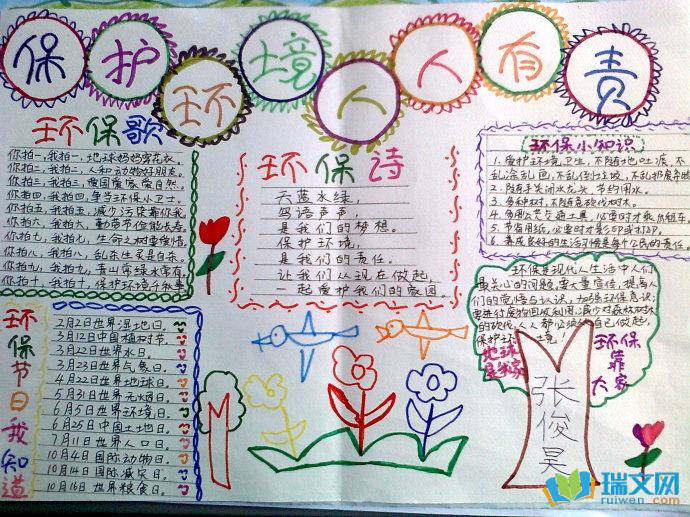 保护环境人人有责
环保歌
你拍一,我拍一,地球妈妈穿花衣。
你拍二,我拍二,人和动物好朋友。
你拍三,我拍三,爱国爱家爱自然。
你拍四,我拍四,争当环保小卫士。
你拍五,我拍五,减少污染靠你我。
你拍六,我拍六,勤劳节俭能长寿。
你拍七,我拍七,生命之树要爱惜。
你拍八,我拍八,乱杀生灵是自杀。
你拍九,我拍九,青山常绿水常有。
你拍十,我拍十,保护环境
环保诗
天蓝水绿,
鸟语声声,
是我们的梦想。
保护环境,
是我们的责任。
让我们从现在做起,
一起爱护我们的家园。
环保小知识
1.爱护环境卫生,不随地吐痰,不
乱涂乱画,不乱倒垃圾,不乱扔废弃物
2.随手关闭水龙头,节约用水。
3.多种树,不随意砍伐树木。
4.多用公共交通工具,必要时才乘出租车。
5.节省用纸,必要时才影印或打印。
6.养成良好的生活习惯是每个公民的责任。
环保是现代人生活中人们
最关心的问题,要大量宣传,提高人
们的觉悟与认识,加强环保意识;
要进行废物回收利用,减少对森林树木
的砍伐,人人都必须自己做起,
保护环境!
地球
是我家
环保
靠
大家
张俊昊
环保节日我知道
2月2日世界湿地日。
3月12日中国植树节。
3月22日世界水日。
3月23日世界气象日。
4月22日世界地球日。
5月31日世界无烟日。
6月5日世界环境日。
6月25日中国土地日。
7月11日世界人口日。
10月4日国际动物日。
10月14日国际减灾日。
10月16日世界粮食日。
瑞文网
ruiwen.com